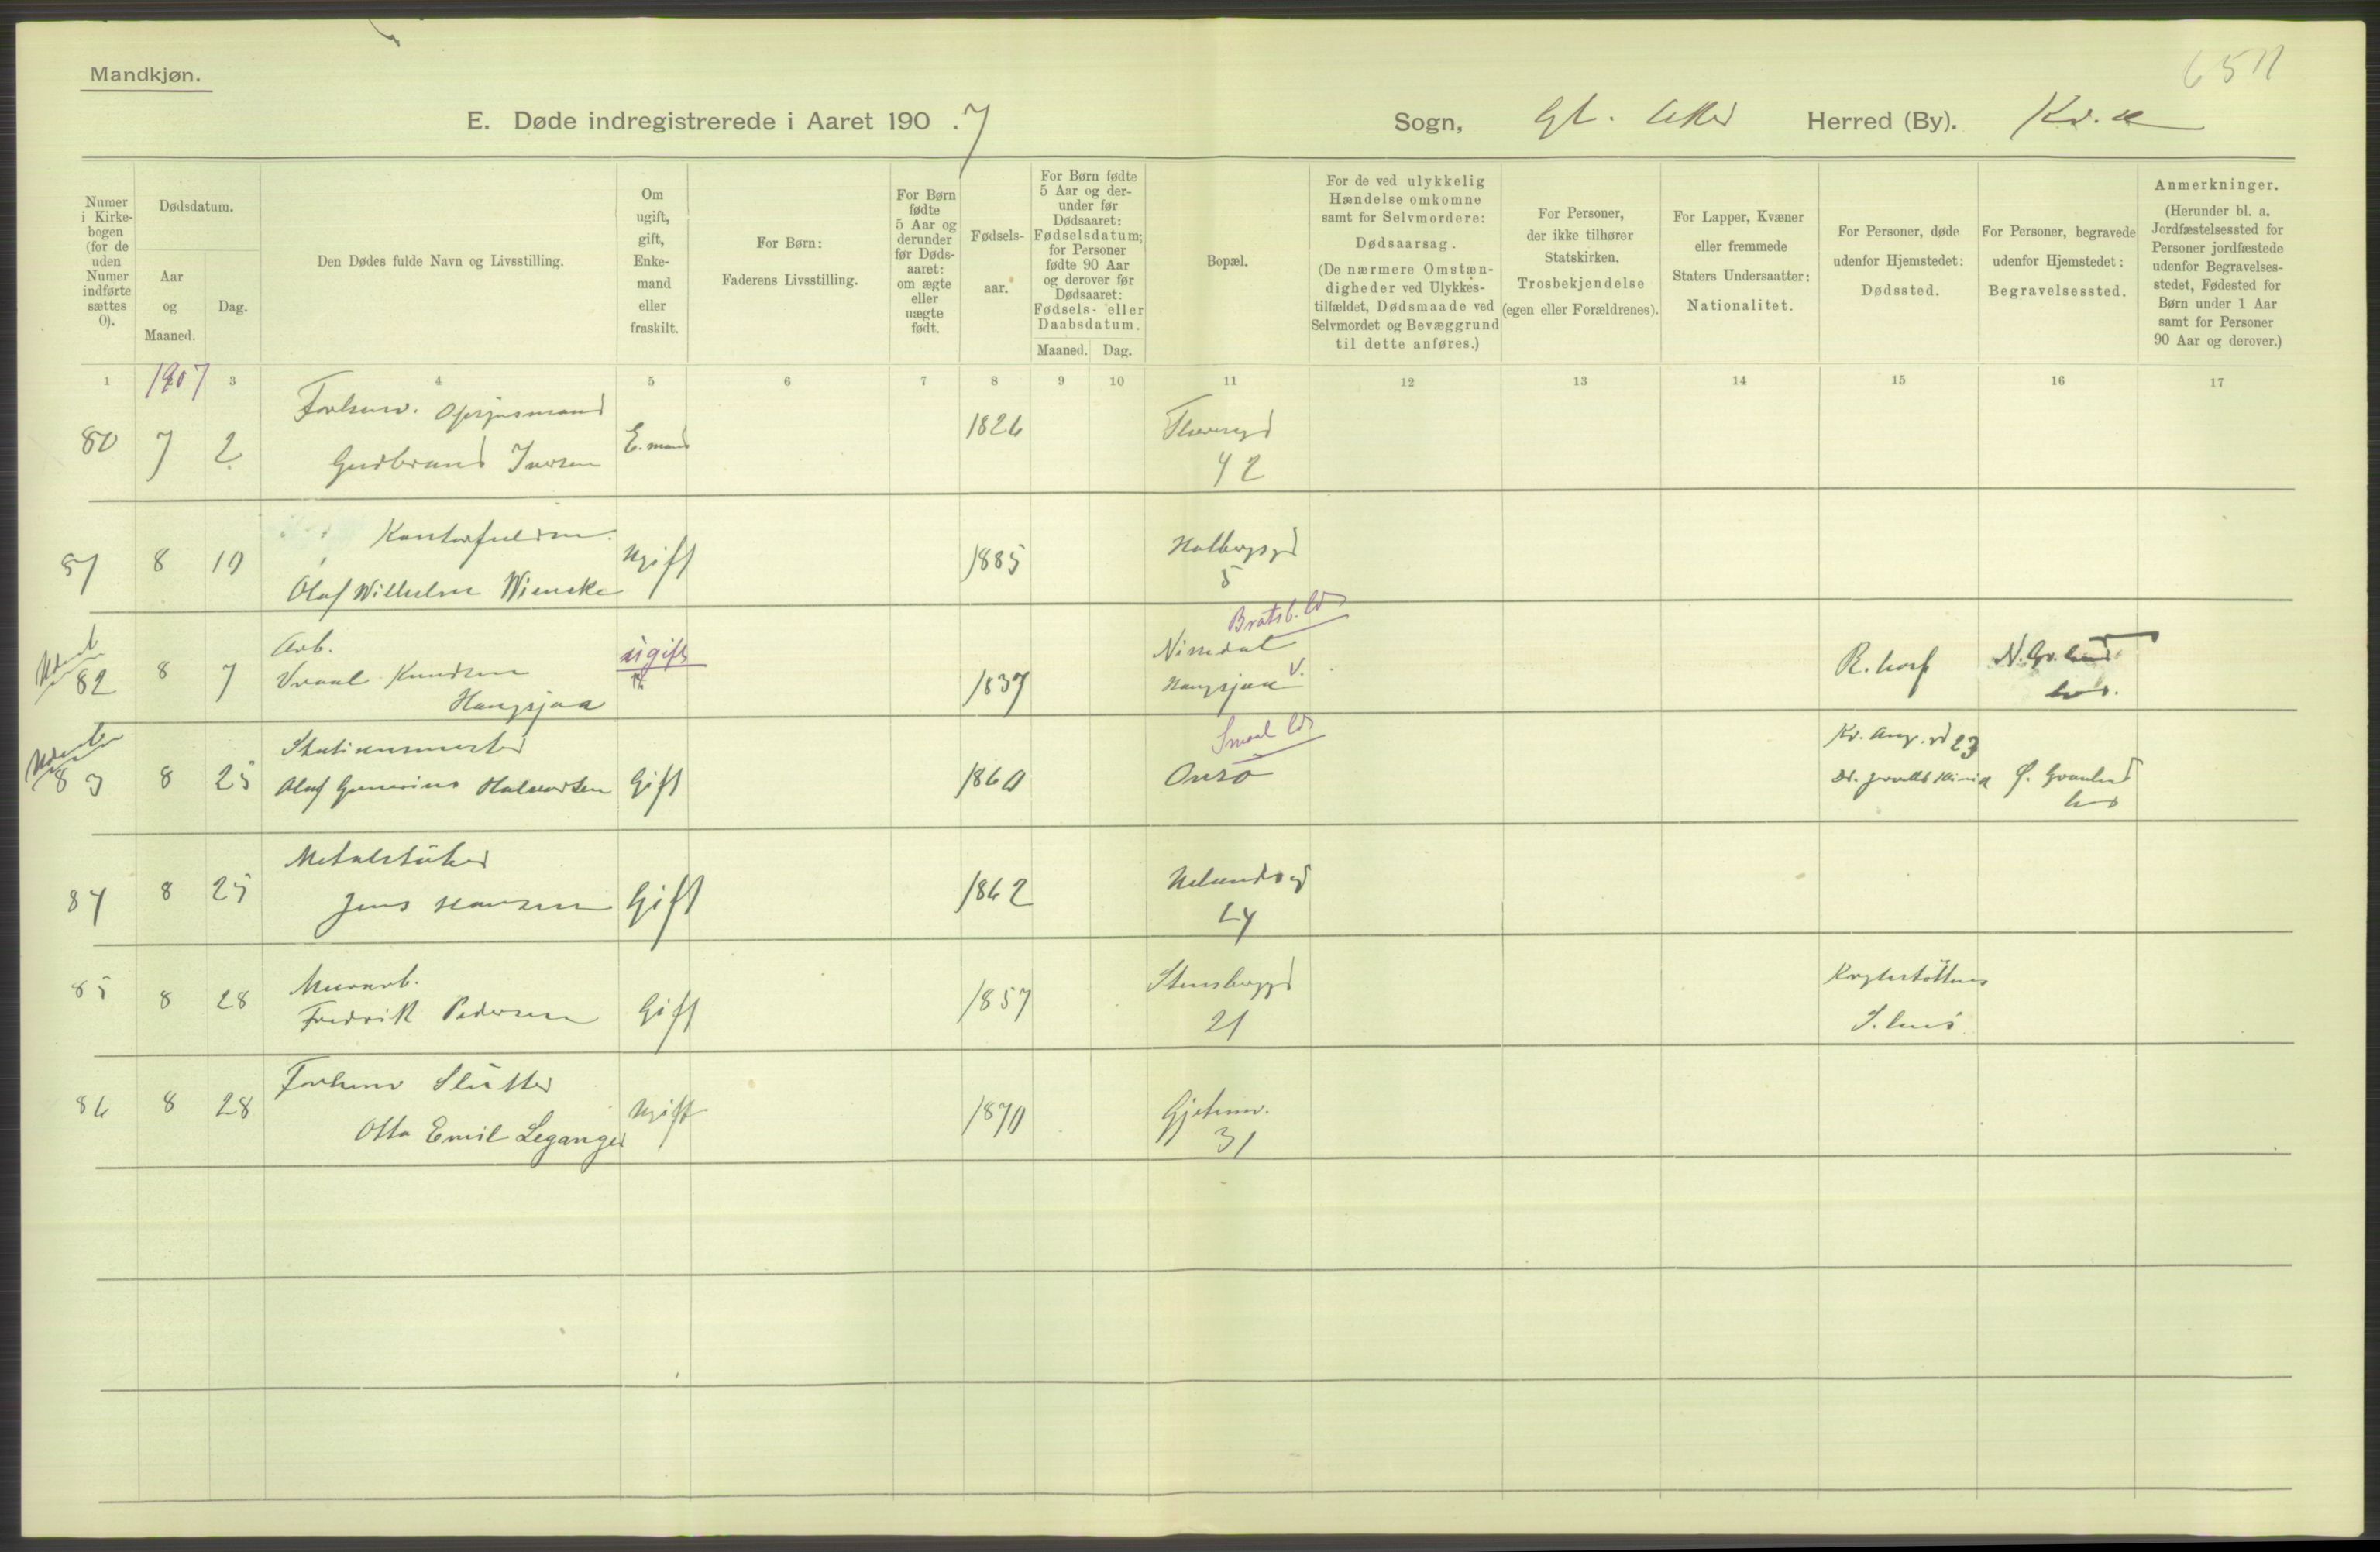 Mandkjøn.
E. Døde indregistrerede i Aaret 190.7 Sogn, Gl. Aker Herred (By). Kr.a
Numer i Kirkebogen (for de uden Numer indførte sættes 0).
Dødsdatum.
Aar og Maaned.
Dag.
Den Dødes fulde Navn og Livsstilling.
Om ugift, gift, Enkemand eller fraskilt.
For Børn:
Faderens Livsstilling.
For Børn fødte 5 Aar og derunder før Dødsaaret: om ægte eller uægte født.
Fødselsaar.
For Børn fødte 5 Aar og derunder før Dødsaaret: Fødselsdatum; for Personer fødte 90 Aar og derover før Dødsaaret: Fødsels- eller Daabsdatum.
Maaned. Dag.
Bopæl.
For de ved ulykkelig Hændelse omkomne samt for Selvmordere:
Dødsaarsag.
(De nærmere Omstændigheder ved Ulykkestilfældet, Dødsmaade ved Selvmordet og Bevæggrund til dette anføres.)
For Personer, der ikke tilhører Statskirken, Trosbekjendelse (egen eller Forældrenes).
For Lapper, Kvæner eller fremmede Staters Undersaatter: Nationalitet.
For Personer, døde udenfor Hjemstedet: Dødssted.
For Personer, begravede udenfor Hjemstedet: Begravelsessted.
Anmerkninger.
(Herunder bl. a. Jordfæstelsessted for Personer jordfæstede udenfor Begravelsesstedet, Fødested for Børn under 1 Aar samt for Personer 90 Aar og derover.)
1 1907 3 4 5 6 7 8 9 10 11 12 13 14 15 16 17
Forhenv. Opsynsmand
80 7 2 Gudbrand Iversen E.mand 1826
42
81 8 10 Olaf Wilhelm Wiencke Ugift 1885 Holbergsgd
5
Bratsb.
Arb. Nissedal
82 8 7 Knudsen ugift 1837 R.hosp
Haugsjaa Haugsjaa
Smaal
Stationsmester Kr. Aug. gd 23
83 8 25 Olaf Gunerius Halvorsen Gift 1860 Onsø
Metalstøber
84 8 25 Jens Hansen Gift 1862
Murarb. Stensberggd
85 8 28 Fredrik Pedersen Gift 1857 21
Forhenv Slutter
86 8 28 Otto Emil Leganger Ugift 1870
31